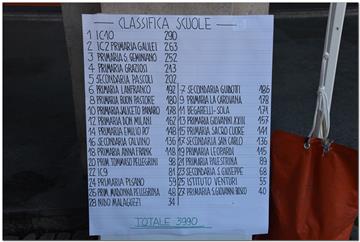 CLASSIFICA SCUOLE
1 IC10 290
2 IC2 PRIMARIA GALILEI 263
3 PRIMARIA S. GEMINIANO 252
4 PRIMARIA GRAZIOSI 213
5 SECONDARIA PASCOLI 202
6 PRIMARIA LANFRANCO 192
8 PRIMARIA BUON PASTORE 180
10 PRIMARIA SALICETO PANARO 178
12 PRIMARIA DON MILANI 162
14 PRIMARIA EMILIO PO 148
16 SECONDARIA CALVINO 136
18 PRIMARIA ANNA FRANK 118
20 PRIM. TOMMASO PELLEGRINI 98
22 IC9 81
24 PRIMARIA PISANO 59
26 PRIM. MADONNA PELLEGRINA 48
28 NIDO MALAGUZZI 34
7 SECONDARIA GUINIZELLI 186
9 PRIMARIA LA CAROVANA 178
11 BEGARELLI - SOLA 171
13 PRIMARIA GIOVANNI XXIII 157
15 PRIMARIA SACRO CUORE 144
17 SECONDARIA SAN CARLO 136
19 PRIMARIA LEOPARDI 115
21 PRIMARIA PALESTRINA 89
23 SECONDARIA S. GIUSEPPE 68
25 ISTITUTO VENTURI 55
27 PRIMARIA S. GIOVANNI BOSCO 40
TOTALE 3990